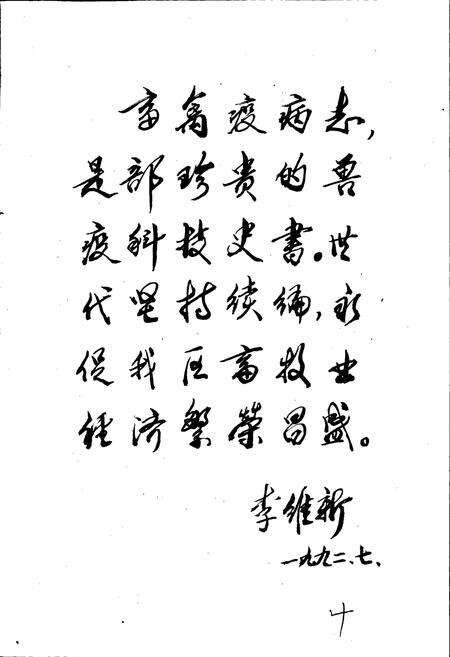 畜禽疫病志，
是部珍贵的兽
疫科技史書。世
代坚持续编，永
促我区畜牧业
经济繁荣昌盛。
李维新
一九九二、七、